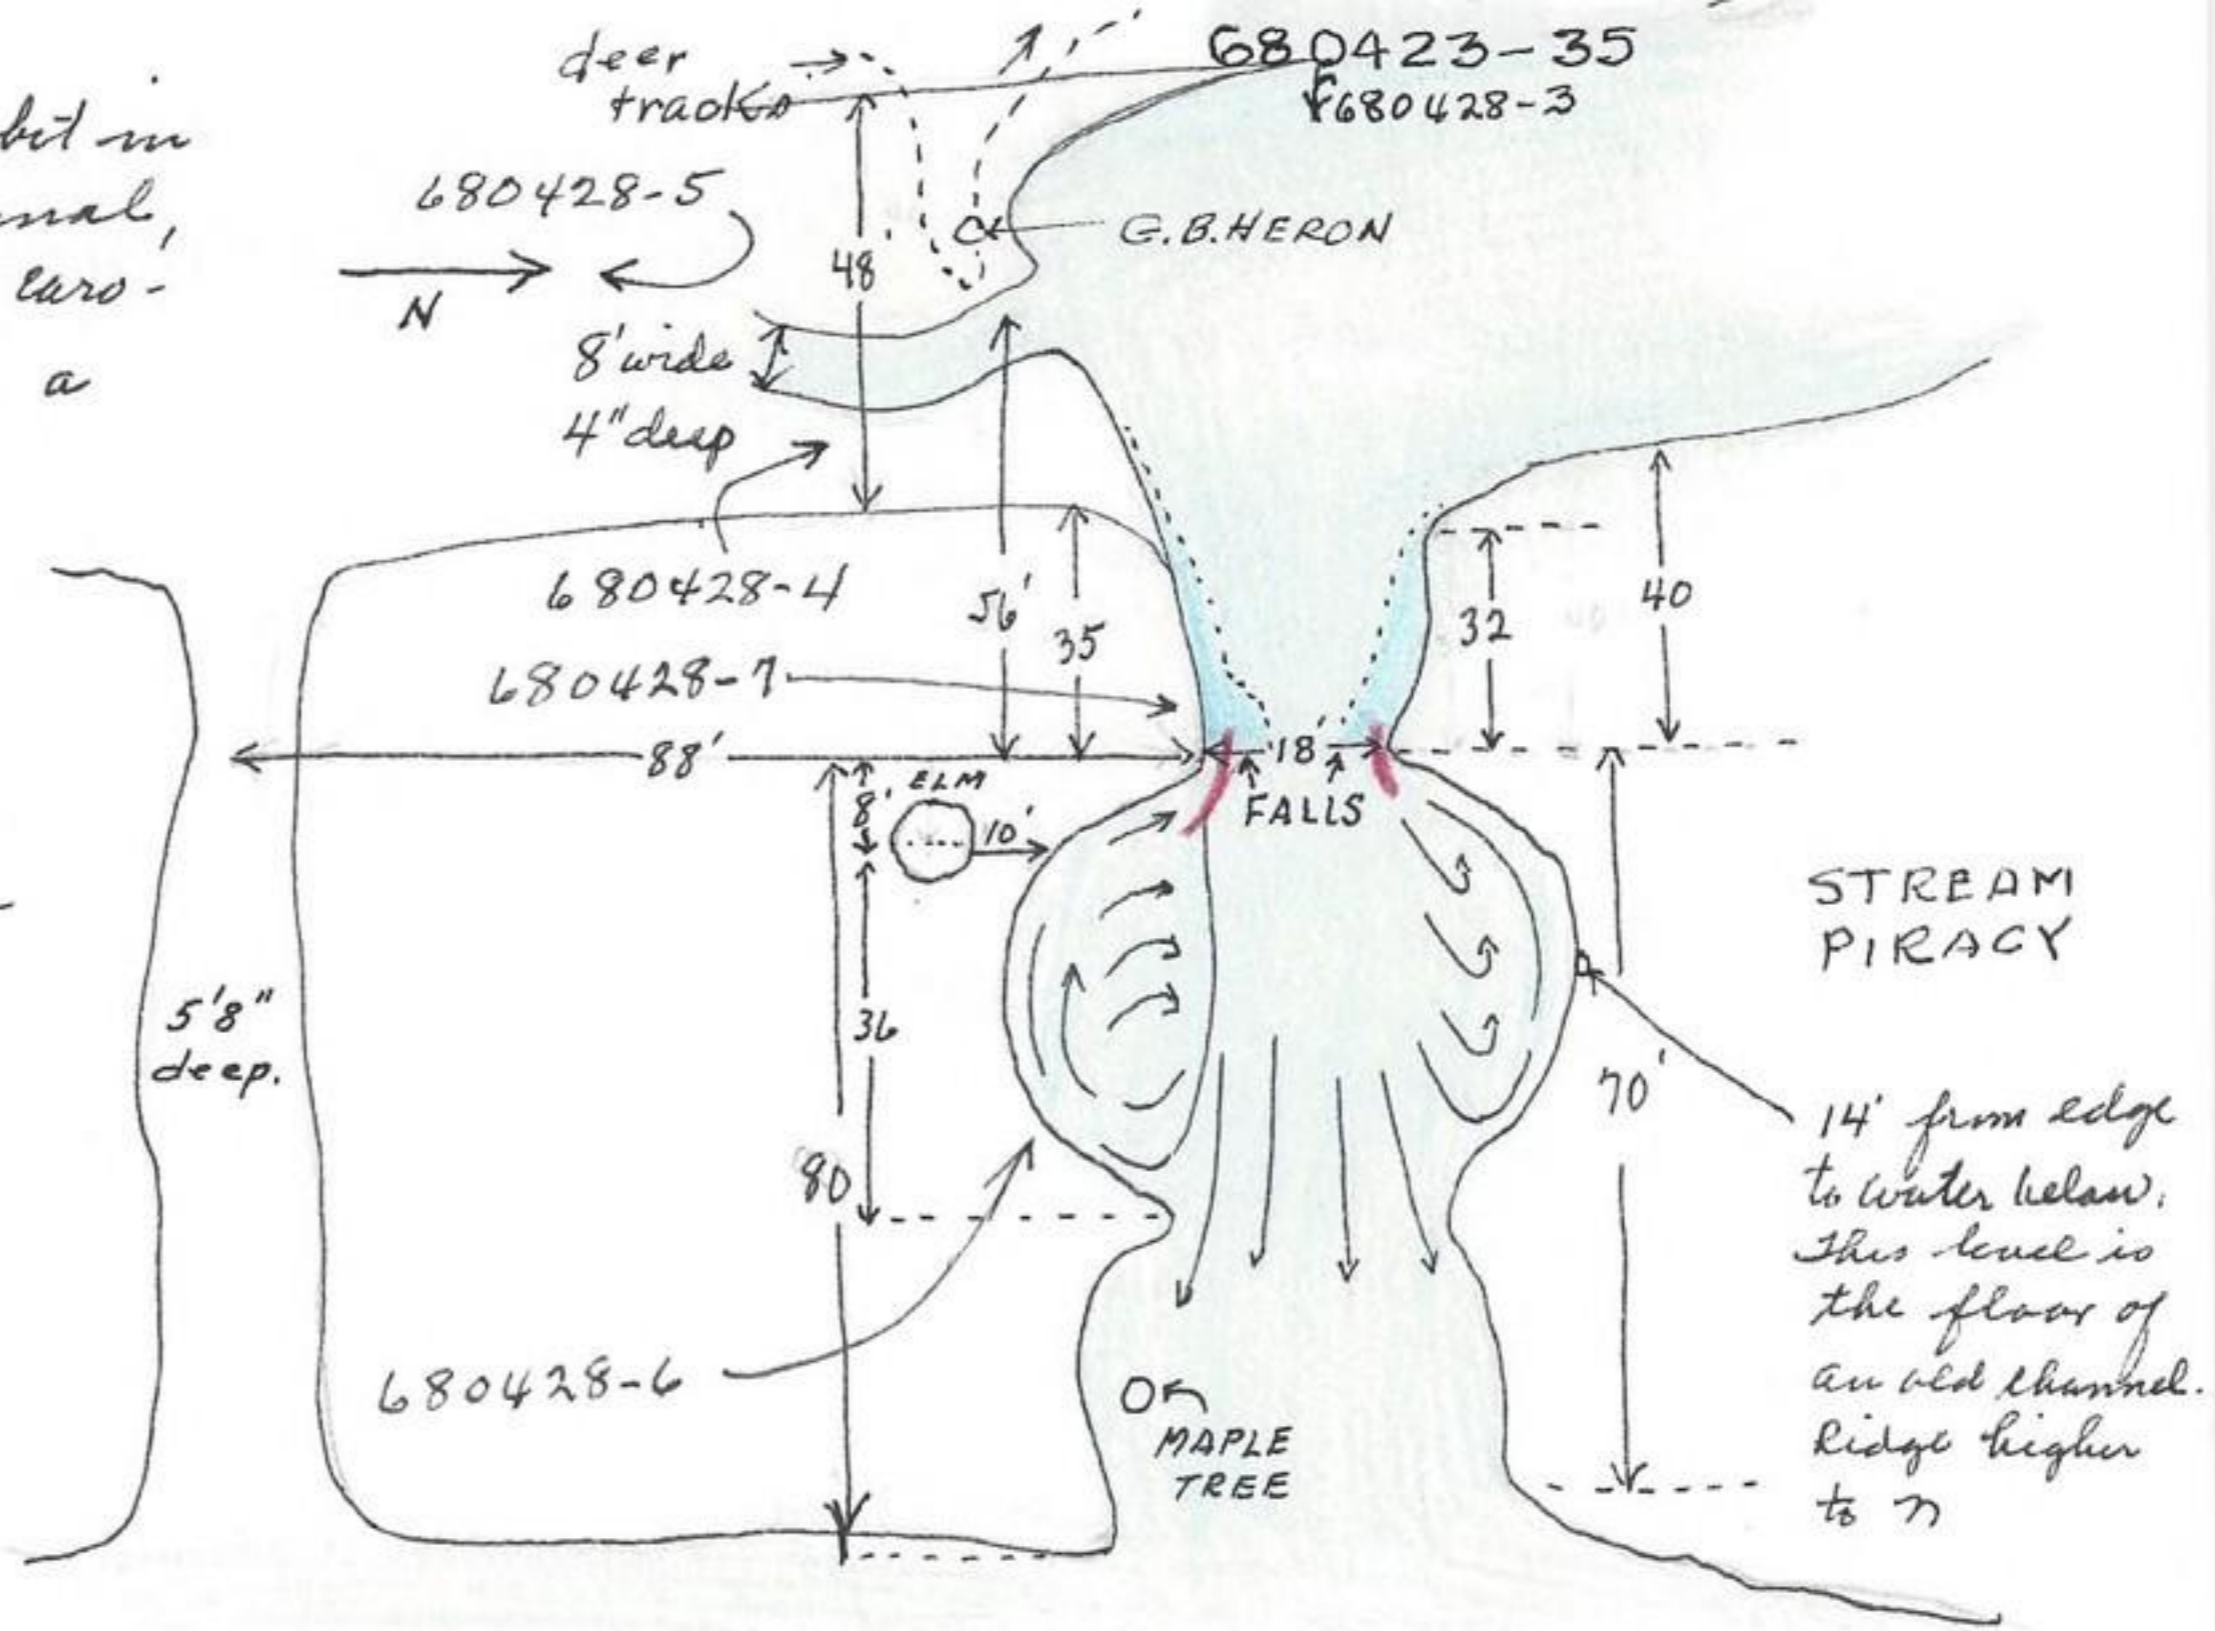 680423-35
680428-3
deer
tracks
bit in
680428-5
G.B.HERON
48'
N
8' wide
a
4" deep
680428-4
56'
35
32
40
680428-7
88'
18'
8'
ELM
10'
FALLS
STREAM
PIRACY
5'8"
deep.
36
70'
80
14' from edge
to water below.
This level is
the floor of
an old channel.
Ridge higher
to N
680428-6
MAPLE
TREE